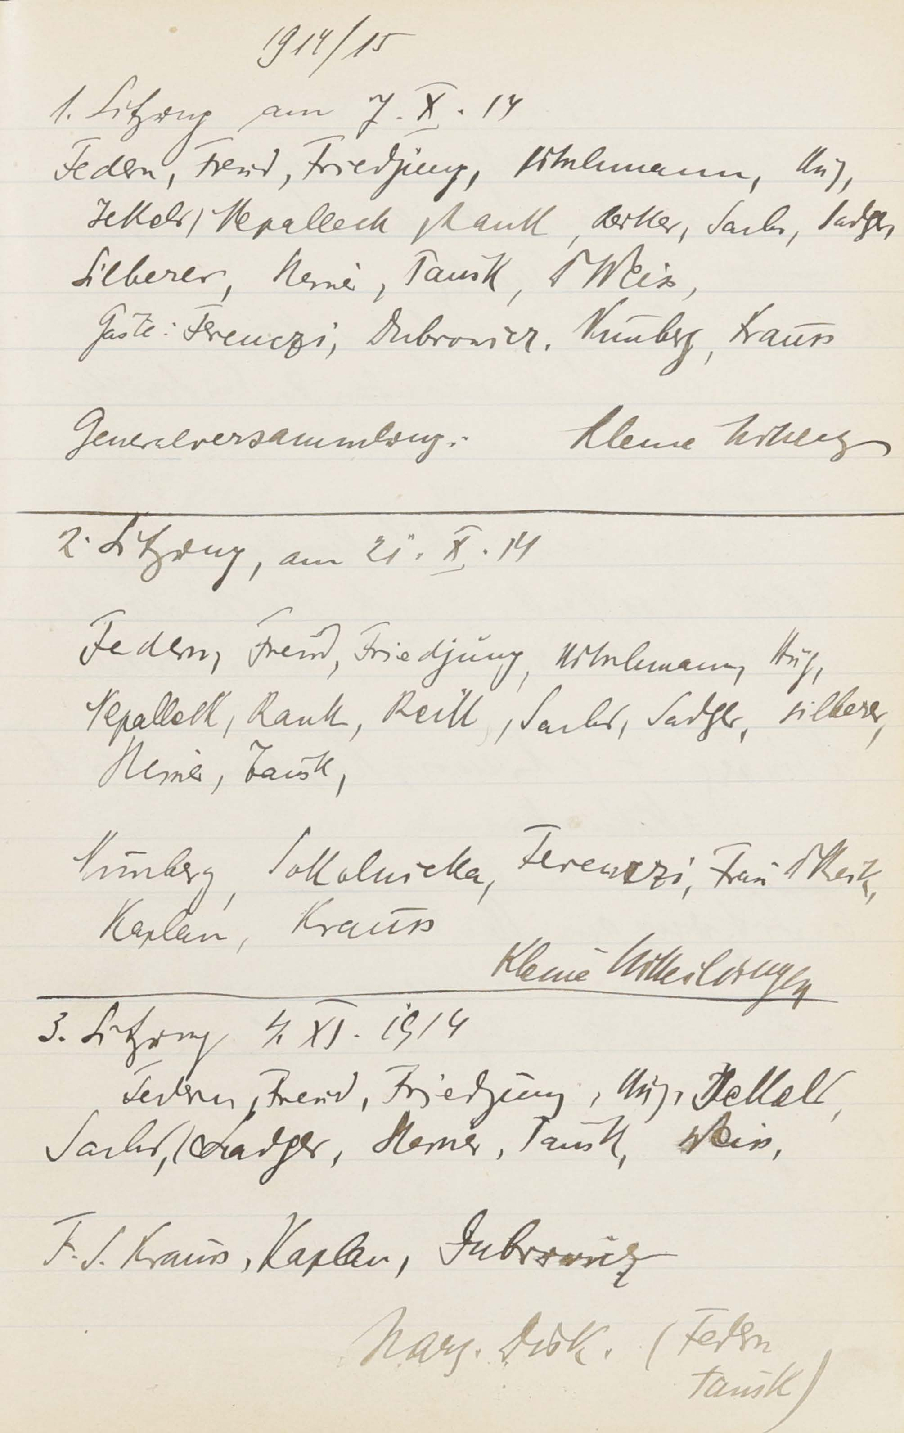 1914/15
1. Sitzung am 7. X. 14
Federn, Freud, Friedjung, Hitschmann, Hug,
Jekels, Nepalleck, Rank, Sachs, Sadger,
Silberer, Steiner, Tausk, Weiss,
Gäste: Ferenczi, Dubrowicz, Nunberg, Krauss
Generalversammlung. Kleine
2. Sitzung, am 21. X. 14
Federn, Freud, Friedjung, Hitschmann, Hug,
Nepalleck, Rank, Reik, Sachs, Sadger, Silberer,
Steiner, Tausk,
Nunberg, Sokolnicka, Ferenczi, Frau
Kaplan, Krauss
Kleine Mitteilungen
3. Sitzung 4. XI. 1914
Federn, Freud, Friedjung, Hug,
Sachs, Sadger, Steiner, Tausk, Weiss,
F. S. Krauss, Kaplan, Dubrowicz
Disk. (Federn
Tausk)